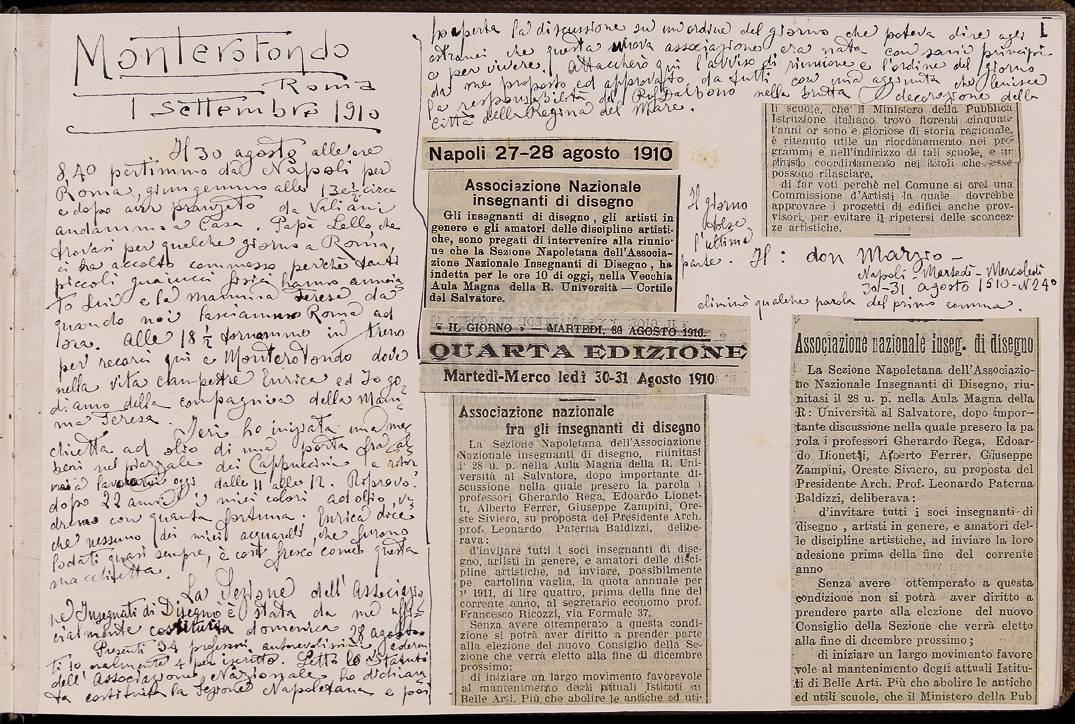 Monterotondo
Roma
1 Settembre 1910
Il 30 agosto alle ore
8,40 partimmo da Napoli per
Roma, giungemmo alle 13 e ½ circa
e dopo aver pranzato da Valiani
andammo a Casa. Papà Lello, che
trovasi per qualche giorno a Roma,
ci ha accolto commosso perchè tanti
piccoli
a Lui e la mammina Teresa da
quando noi lasciammo Roma ad
ora. Alle 18 ½ tornammo in treno
per recarci qui a Monterotondo dove
nella vita campestre Enrica ed Io go-
diamo della compagnia della Mam-
ma Teresa.
Ieri ho iniziata una mac
chietta ad olio di una porta fra al
beri nel piazzale dei Cappuccini
oggi dalle 11 alle 12. Riprovo
dopo 22 anni i miei colori ad olio, ve
dremo con quanta fortuna. Enrica dice
che nessuno dei miei acquarelli, che furono
lodati quasi sempre, è così fresco come questa
macchietta.
La Sezione dell'Associazio
ne Insegnanti di Disegno è stata da me uffi-
cialmente costituita domenica 28 agosto.
Presenti 34 professori, autorevolissimi, aderen
ti 10 oralmente 4 per iscritto. Letto lo Statuto
dell'Associazione Nazionale ho dichiara
ta costituita la Sezione Napoletana e poi
I
ho aperta la discussione su un'ordine del giorno che poteva dire agli
estranei che questa nuova associazione era nata con sani principi
e per vivere. Attaccherò qui l'avviso di riunione e l'ordine del giorno
da me proposto ed approvato da tutti con una aggiunta che
la responsabilità del Prof. Dalbono nella brutta decorazione della
città della Regina del Mare.
Napoli 27-28 agosto 1910
Associazione Nazionale
insegnanti di disegno
Gli insegnanti di disegno, gli artisti in
genere e gli amatori delle discipline artisti-
che, sono pregati di intervenire alla riunio-
ne che la Sezione Napoletana dell'Associa-
zione Nazionale Insegnanti di Disegno, ha
indetta per le ore 10 di oggi, nella Vecchia
Aula Magna della R. Università — Cortile
del Salvatore.
« IL GIORNO » — MARTEDI, 30 AGOSTO 1910.
QUARTA EDIZIONE
Martedì-Merco ledì 30-31 Agosto 1910
Associazione nazionale
fra gli insegnanti di disegno
La Sezione Napoletana dell'Associazione
Nazionale insegnanti di disegno, riunitasi
l' 28 u. p. nella Aula Magna della R. Uni-
versità al Salvatore, dopo importante di-
scussione nella quale presero la parola i
professori Gherardo Rega, Edoardo Lionet-
ti, Alberto Ferrer, Giuseppe Zampini, Ore-
ste Siviero, su proposta del Presidente Arch.
prof. Leonardo Paterna Baldizzi, delibe-
rava:
d'invitare tutti i soci insegnanti di dise-
gno, artisti in genere, e amatori delle disci-
pline artistiche, ad inviare, possibilmente
pe cartolina vaglia, la quota annuale per
il 1911, di lire quattro, prima della fine del
corrente anno, al segretario economo prof.
Francesco Ricozzi, via Formale 37.
Senza avere ottemperato a questa condi-
zione si potrà aver diritto a prender parte
alla elezione del nuovo Consiglio della Se-
zione che verrà eletto alla fine di dicembre
prossimo;
di iniziare un largo movimento favorevole
al mantenimento degli attuali Istituti di
Belle Arti. Più che abolire le antiche ed uti-
li scuole, che' il Ministero della Pubblica
Istruzione italiano trovò fiorenti cinquan-
t'anni or sono e gloriose di storia regionale,
è ritenuto utile un riordinamento nei pro-
grammi e nell'indirizzo di tali scuole, e un
giusto coordinamento nei titoli che esse
possono rilasciare.
di far voti perchè nel Comune si crei una
Commissione d'Artisti la quale dovrebbe
approvare i progetti di edifici anche prov-
visori, per evitare il ripetersi delle sconcez-
ze artistiche.
Il giorno
tolse
l'ultima
parte. Il: don Marzio -
Napoli - Martedì - Mercoledì
30-31 agosto 1910 - N 240
eliminò qualche parola del primo comma.
Associazione nazionale inseg. di disegno
La Sezione Napoletana dell'Associazio-
ne Nazionale Insegnanti di Disegno, riu-
nitasi il 28 u. p. nella Aula Magna della
R. Università al Salvatore, dopo impor-
tante discussione nella quale presero la pa
rola i professori Gherardo Rega, Edoar-
do Lionetti, Alberto Ferrer, Giuseppe
Zampini, Oreste Siviero, su proposta del
Presidente Arch. Prof. Leonardo Paterna
Baldizzi, deliberava:
d'invitare tutti i soci insegnanti di
disegno, artisti in genere, e amatori del-
le discipline artistiche, ad inviare la loro
adesione prima della fine del corrente
anno
Senza avere ottemperato a questa
condizione non si potrà aver diritto a
prendere parte alla elezione del nuovo
Consiglio della Sezione che verrà eletto
alla fine di dicembre prossimo;
di iniziare un largo movimento favore
vole al mantenimento degli attuali Istitu-
ti di Belle Arti. Più che abolire le antiche
ed utili scuole, che il Ministero della Pub